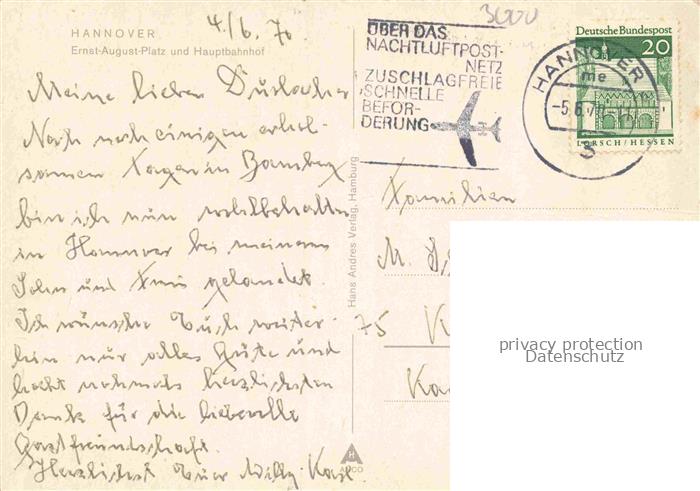 HANNOVER
Ernst-August-Platz und Hauptbahnhof
4./6. 70
3000
ÜBER DAS
NACHTLUFTPOST-
NETZ
ZUSCHLAGFREIE
SCHNELLE
BEFÖR-
DERUNG
HANNOVER
me
-5.6.
3
Deutsche Bundespost
20
LORSCH/HESSEN
Meine lieben Durlacher
Nach noch einigen erhol-
samen Tagen in Bamberg
bin ich nun wohlbehalten
in Hannover bei meinem
Sohn und gelandet.
Ich wünsche Euch weiter-
hin nur alles Gute und
nochmals herzlichsten
Dank für die liebevolle
Gastfreundschaft.
Herzlichst Euer Willy
Hans Andres Verlag, Hamburg
H
ANCO
Familien
M.
75 K
Ka
privacy protection
Datenschutz